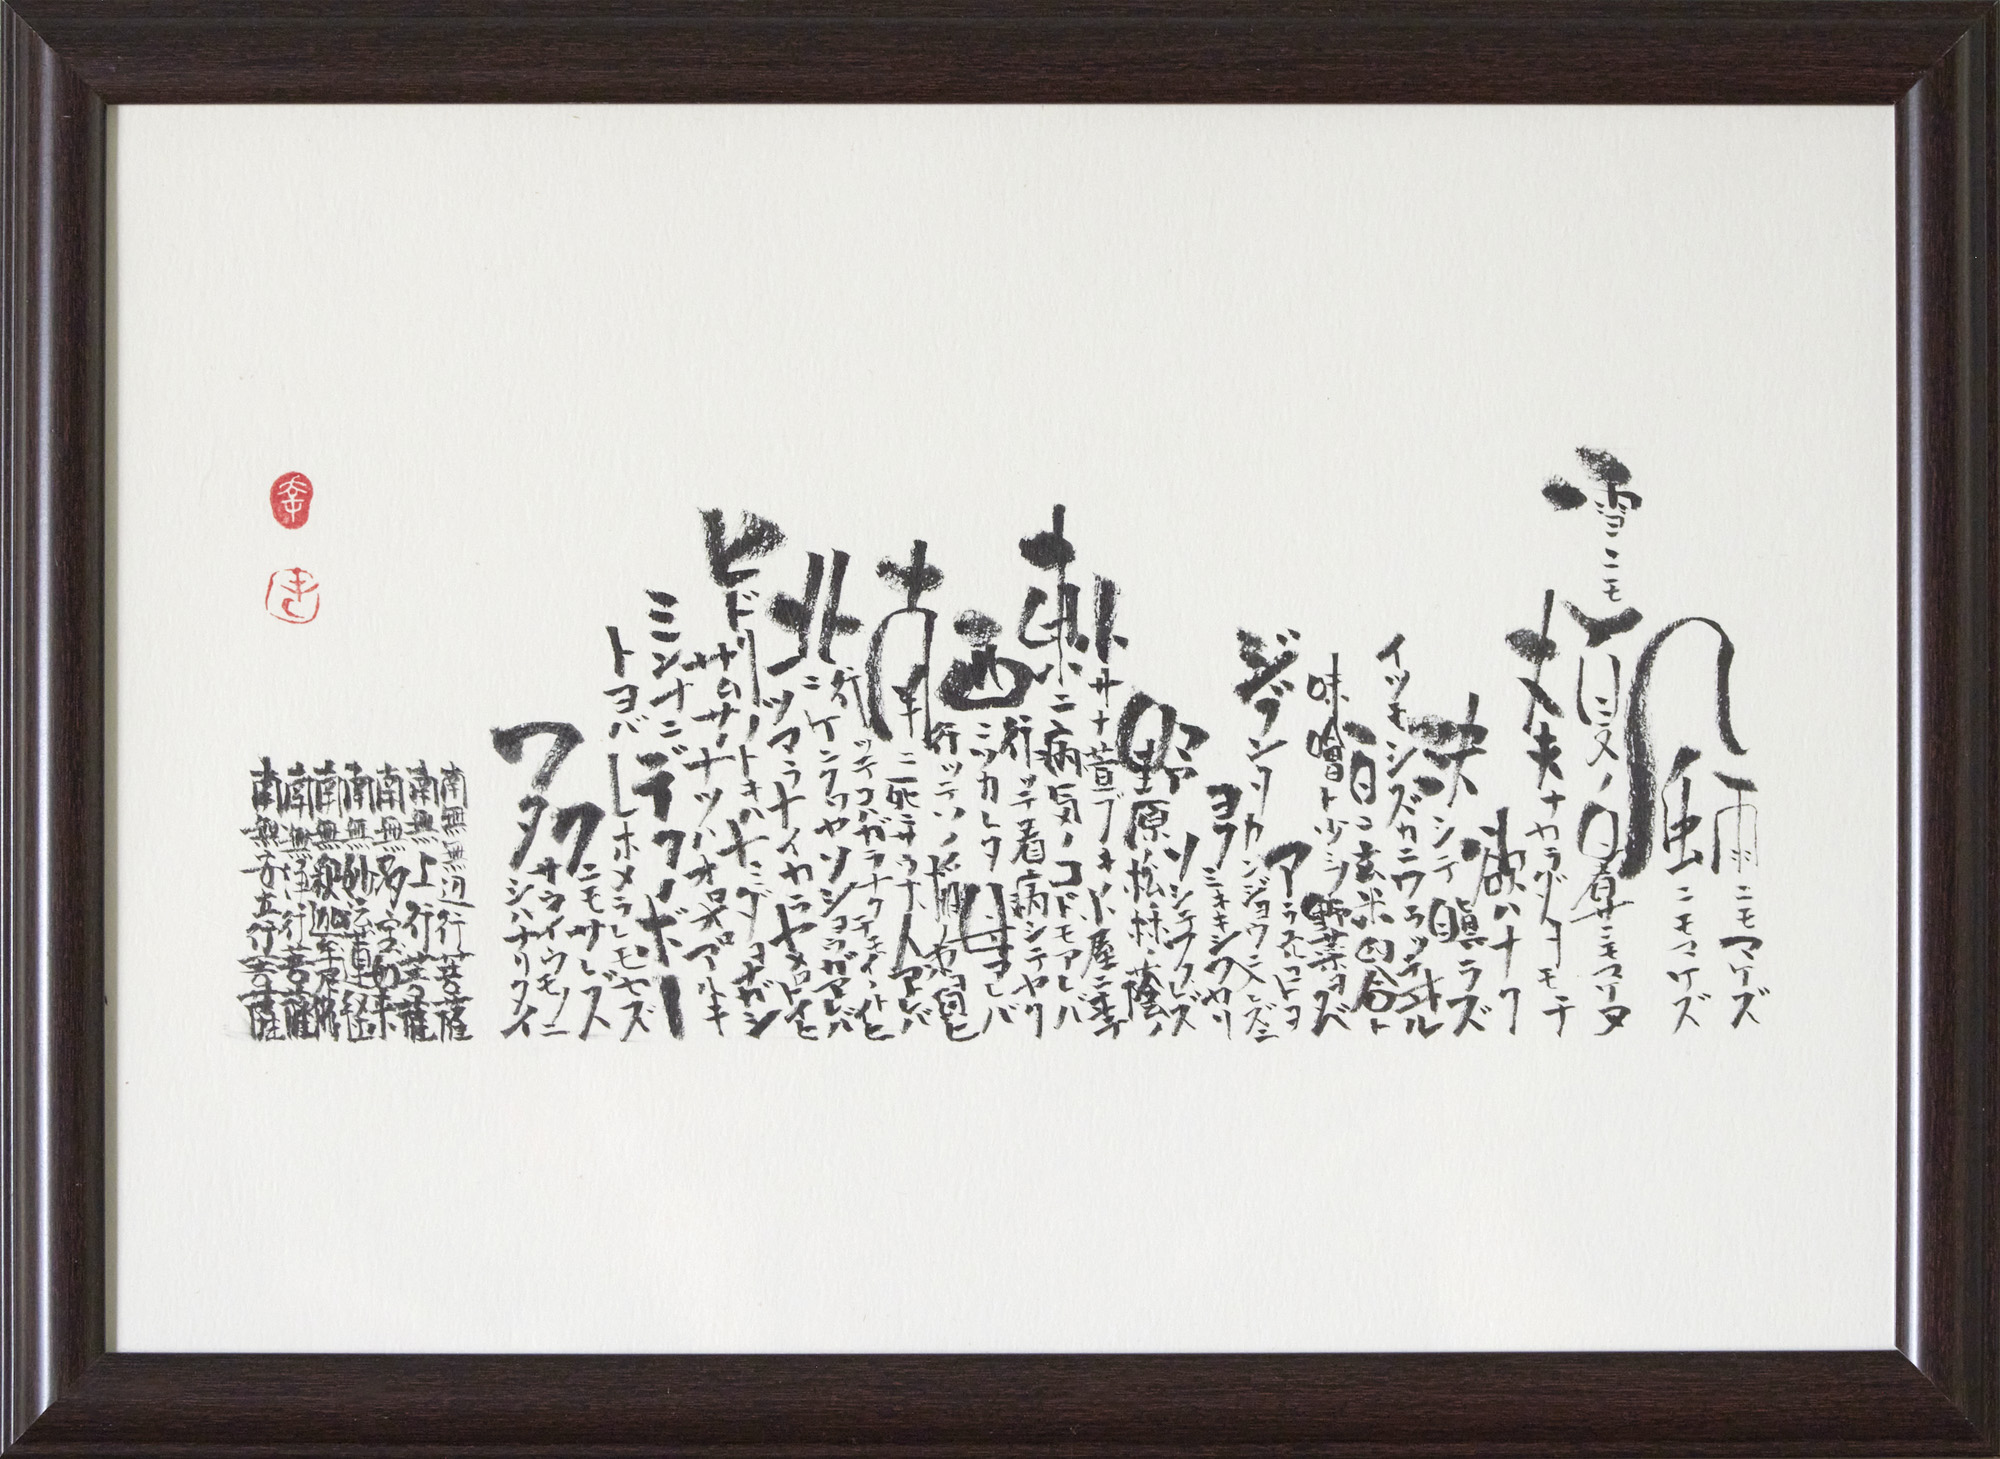 雨ニモマケズ
風ニモマケズ
雪ニモ夏ノ暑サニモマケヌ
丈夫ナカラダヲモチ
欲ハナク
決シテ瞋ラズ
イツモシズカニワラッテヰル
一日ニ玄米四合ト
味噌ト少シノ野菜ヲタベ
アラユルコトヲ
ジブンヲカンジョウニ入レズニ
ヨクミキキシワカリ
ソシテワスレズ
野原ノ松ノ林ノ蔭ノ
小サナ萱ブキノ小屋ニヰテ
東ニ病気ノコドモアレバ
行ッテ看病シテヤリ
西ニツカレタ母アレバ
行ッテソノ稲ノ束ヲ負ヒ
南ニ死ニサウナ人アレバ
行ッテコハガラナクテモイヽトイヒ
北ニケンクヮヤソショウガアレバ
ツマラナイカラヤメロトイヒ
ヒドリノトキハナミダヲナガシ
サムサノナツハオロオロアルキ
ミンナニデクノボー
トヨバレホメラレモセズ
クニモサレズ
サウイウモノニ
ワタシハナリタイ
南無無辺行菩薩
南無上行菩薩
南無多宝如来
南無妙法蓮華経
南無釈迦牟尼佛
南無浄行菩薩
南無安立行菩薩
幸